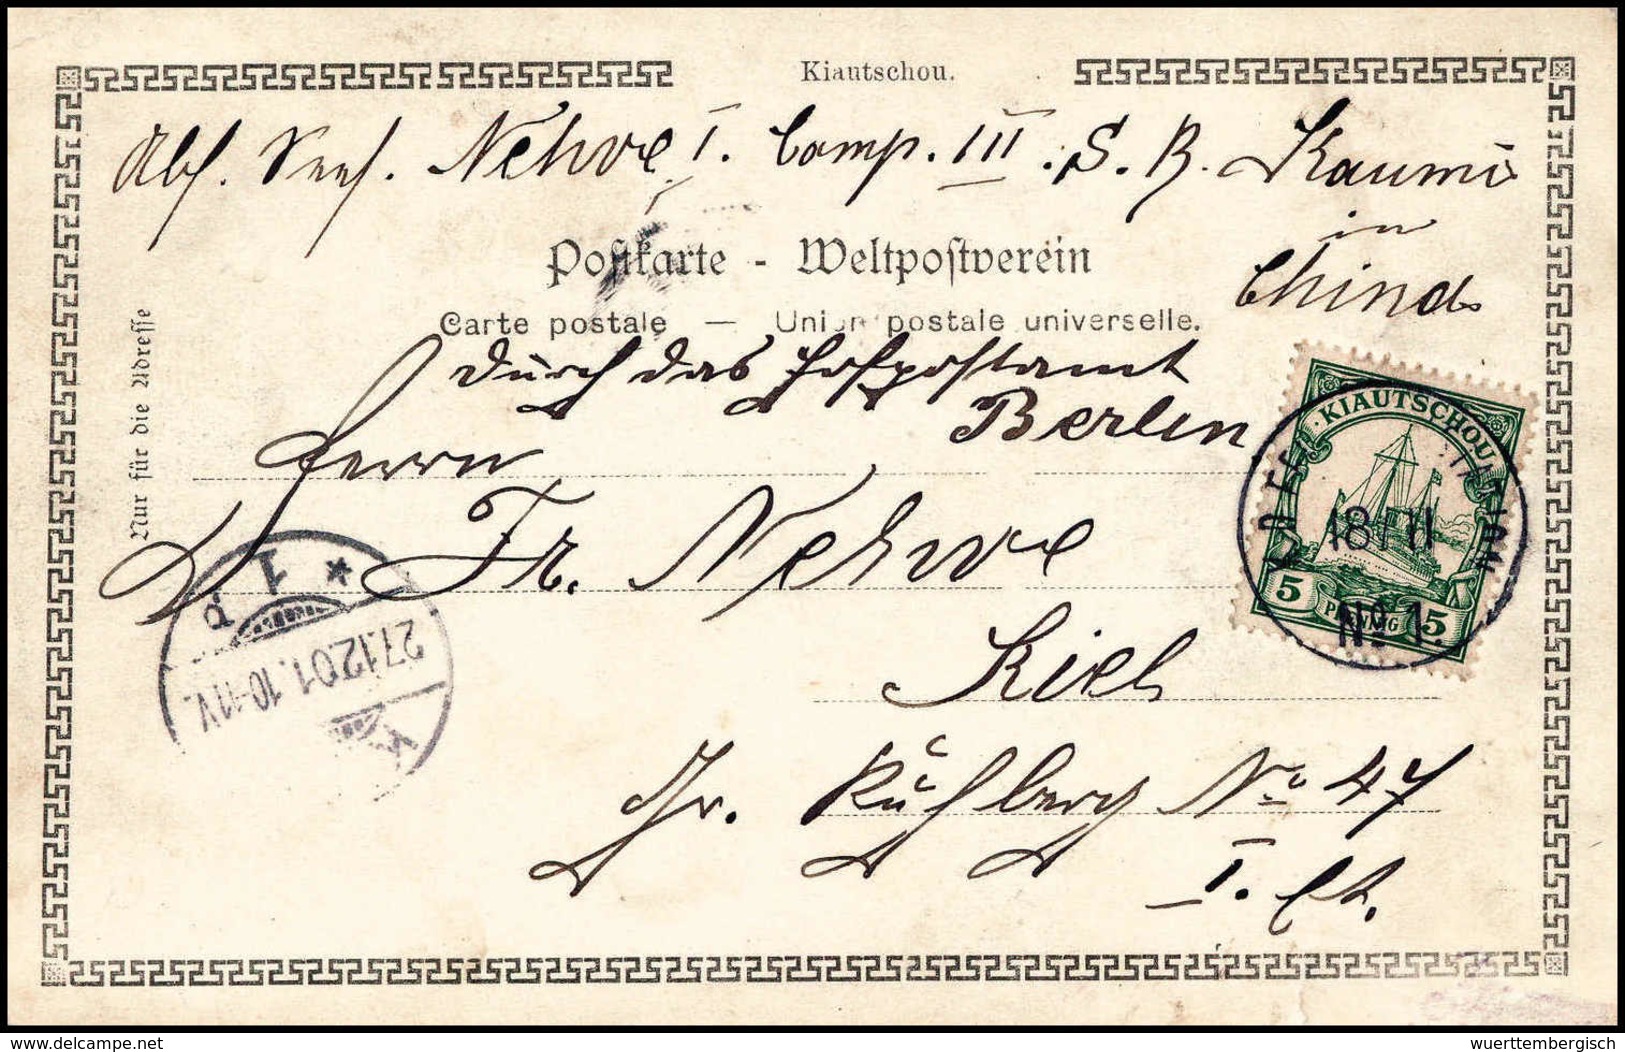 Kiautschou.
Abs. Sees. Nehve I. Comp. III. S. B. Kaumi
in
China
Postkarte - Weltpostverein
Carte postale — Union postale universelle.
Nur für die Adresse
durch das Hofpostamt
Berlin
Herrn
Fr. Nehve
Kiel
Gr. Kuhberg No 47
I. Et.
KIAUTSCHOU
5 PFENNIG 5
18/11
No 1.
27.12.01. 10-11V.
delcampe.net
wuerttembergisch